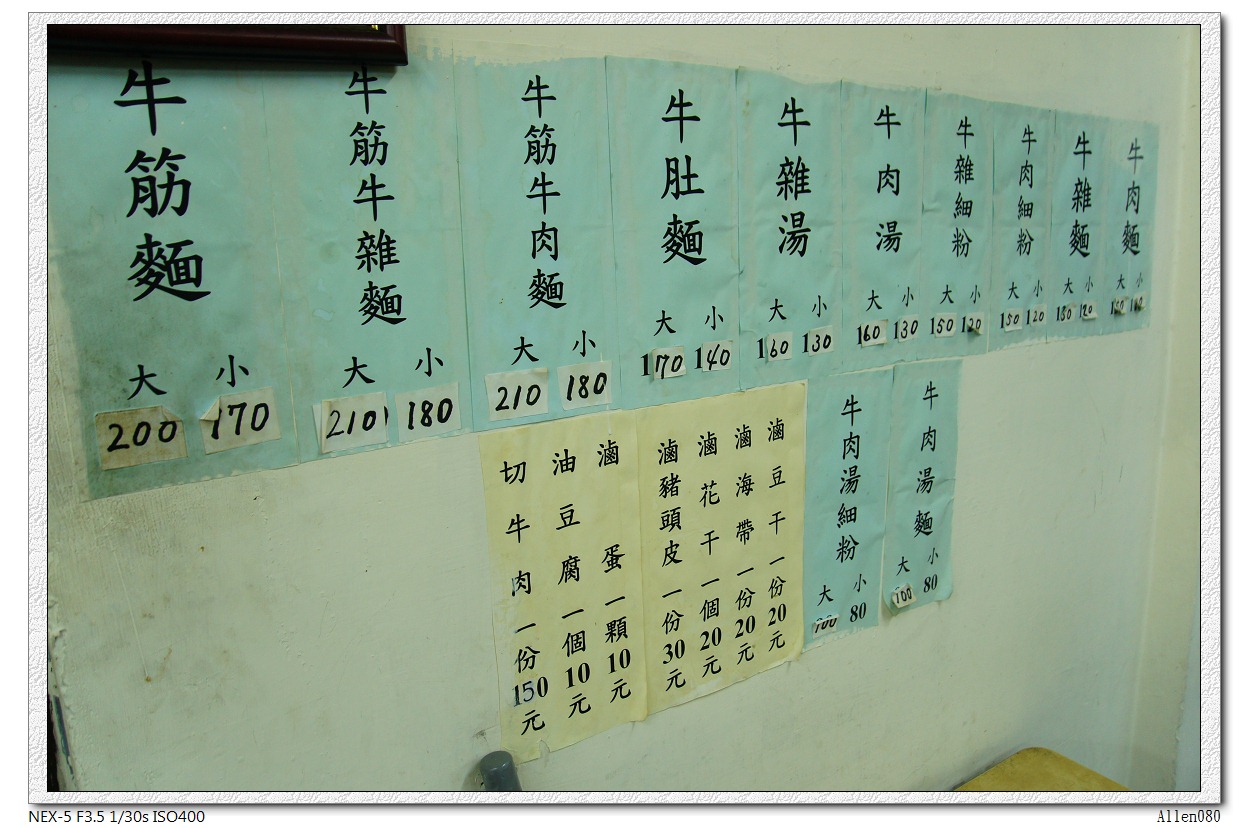 牛肉麵
大 小
牛雜麵
大 小
120
牛肉細粉
大 小
150 120
牛雜細粉
大 小
150 120
牛肉湯
大 小
160 130
牛雜湯
大 小
160 130
牛肚麵
大 小
170 140
牛筋牛肉麵
大 小
210 180
牛筋牛雜麵
大 小
210 180
牛筋麵
大 小
200 170
牛肉湯麵
大 小
100 80
牛肉湯細粉
大 小
100 80
滷豆干一份20元
滷海帶一份20元
滷花干一個20元
滷豬頭皮一份30元
滷蛋一顆10元
油豆腐一個10元
切牛肉一份150元
NEX-5 F3.5 1/30s ISO400
Allen080